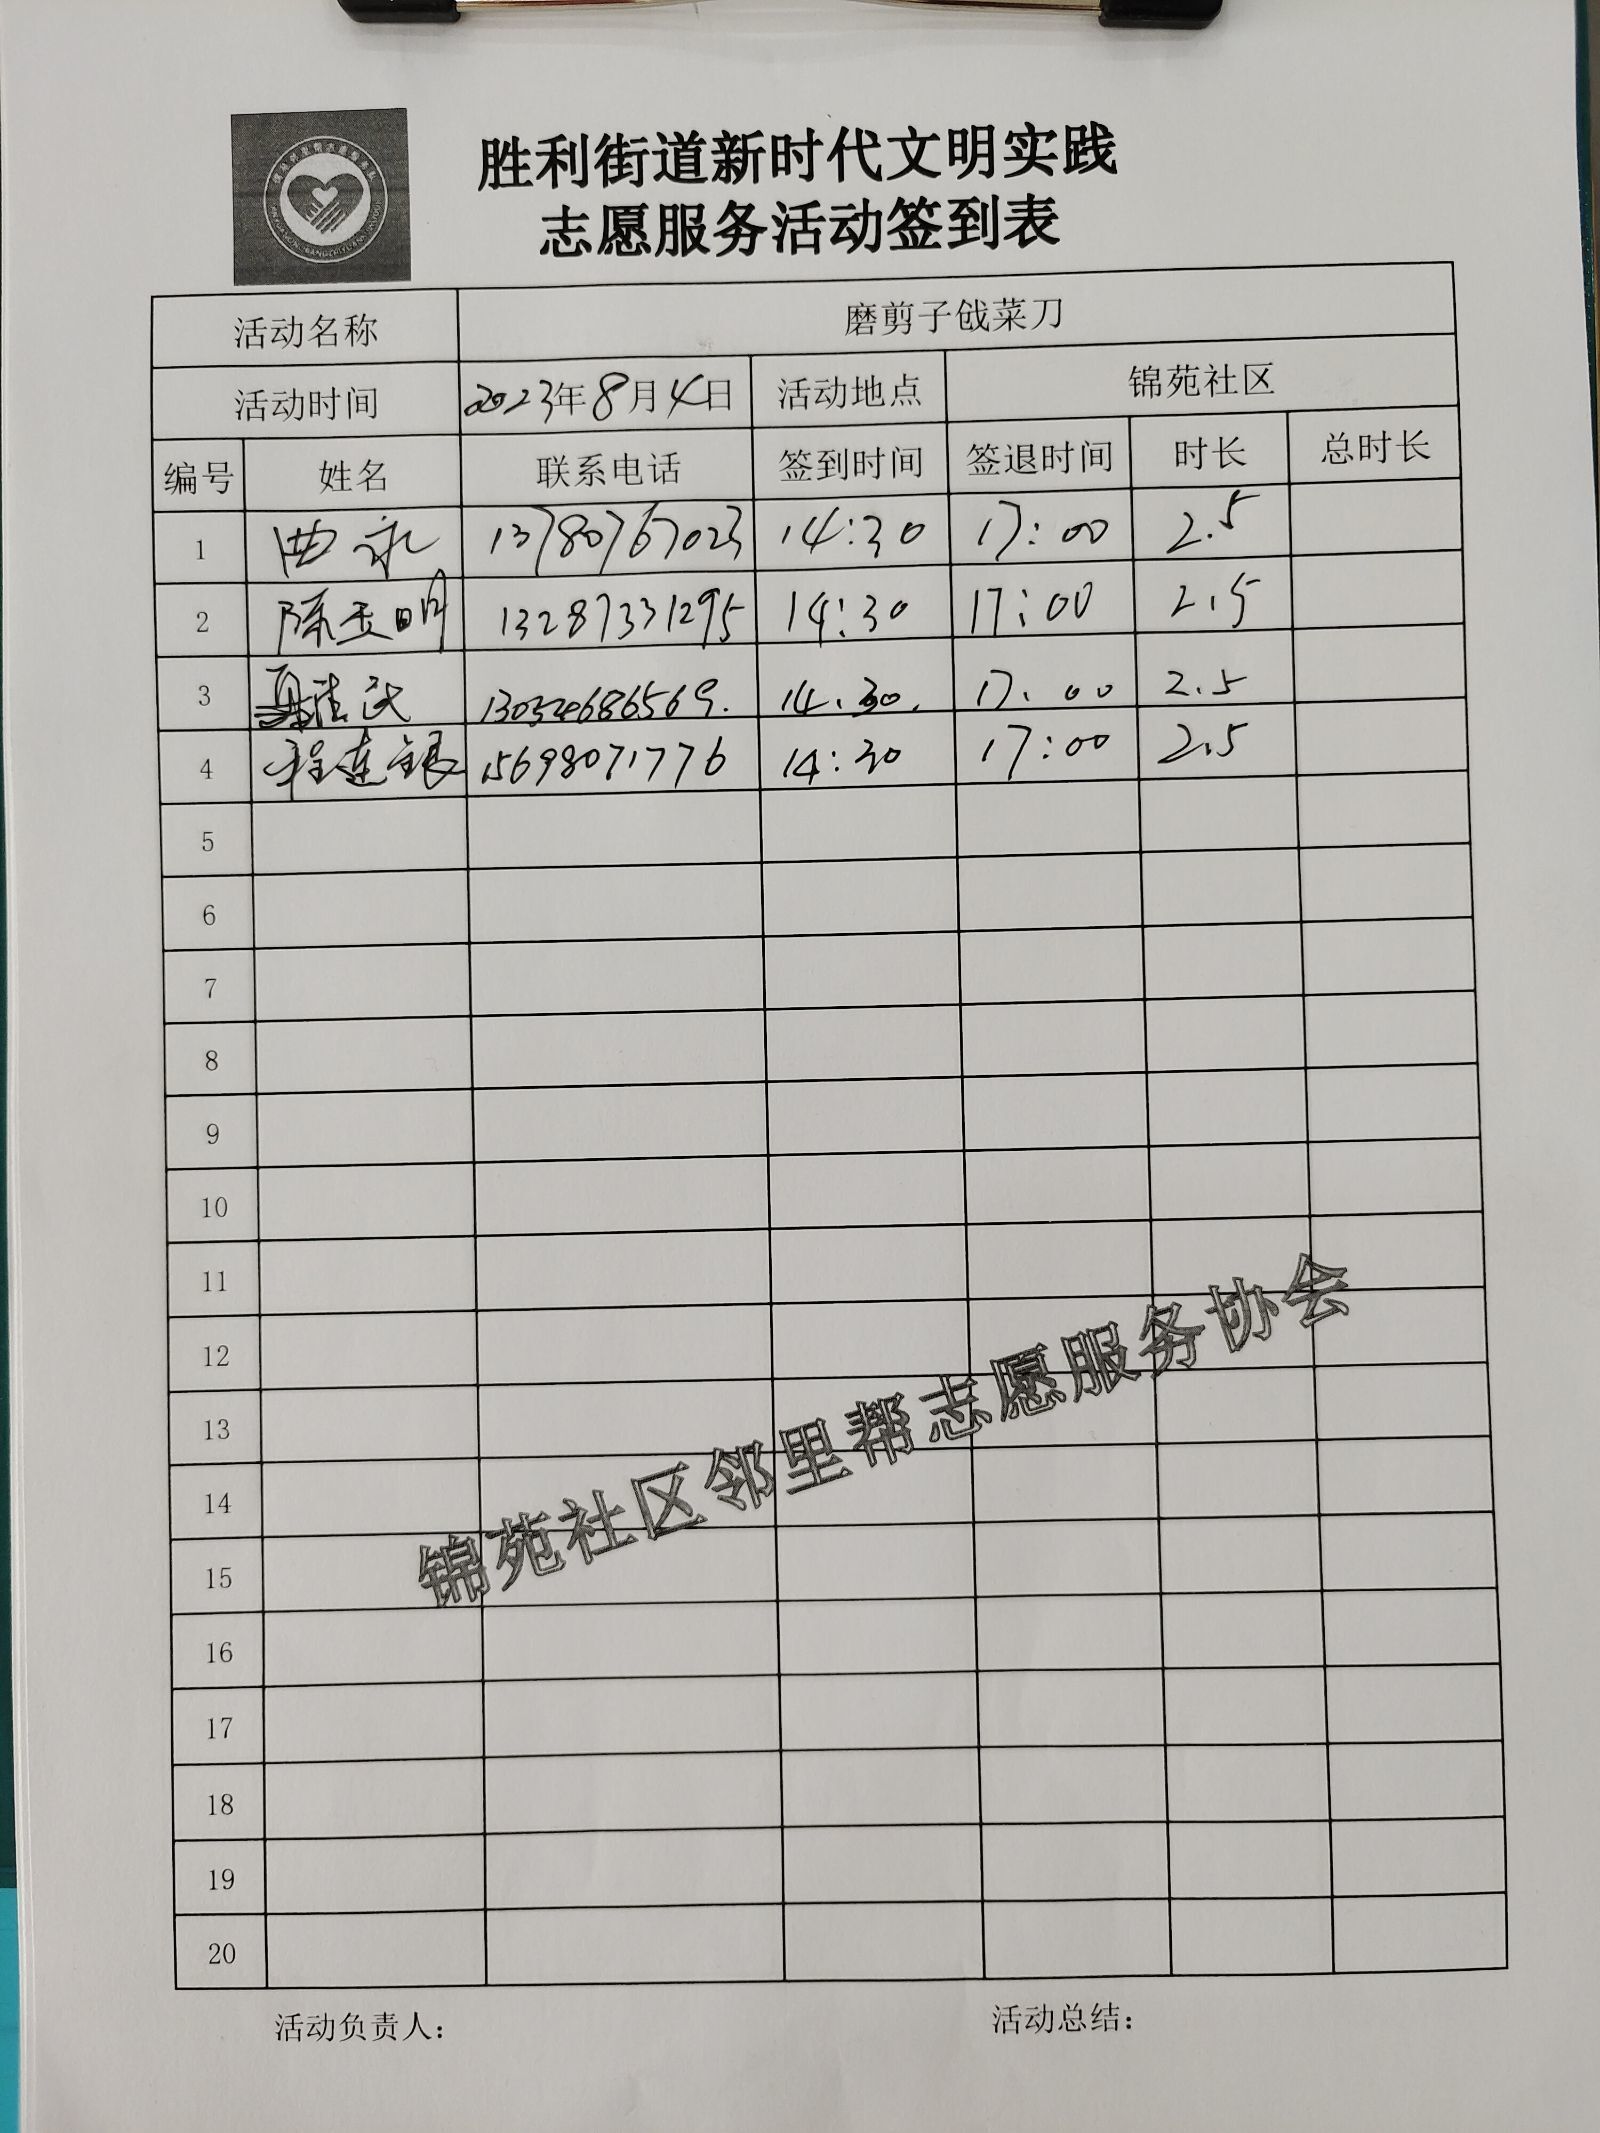 胜利街道新时代文明实践
志愿服务活动签到表
活动名称 磨剪子戗菜刀
活动时间 2023年8月4日 活动地点 锦苑社区
编号 姓名 联系电话 签到时间 签退时间 时长 总时长
1 曲永 13780767023 14:30 17:00 2.5
2 陈玉明 13287331295 14:30 17:00 2.5
3 14.30. 17.00 2.5
4 程连银 15698071776 14:30 17:00 2.5
5
6
7
8
9
10
11
12
13
14
15
16
17
18
19
20
锦苑社区邻里帮志愿服务协会
活动负责人： 活动总结：